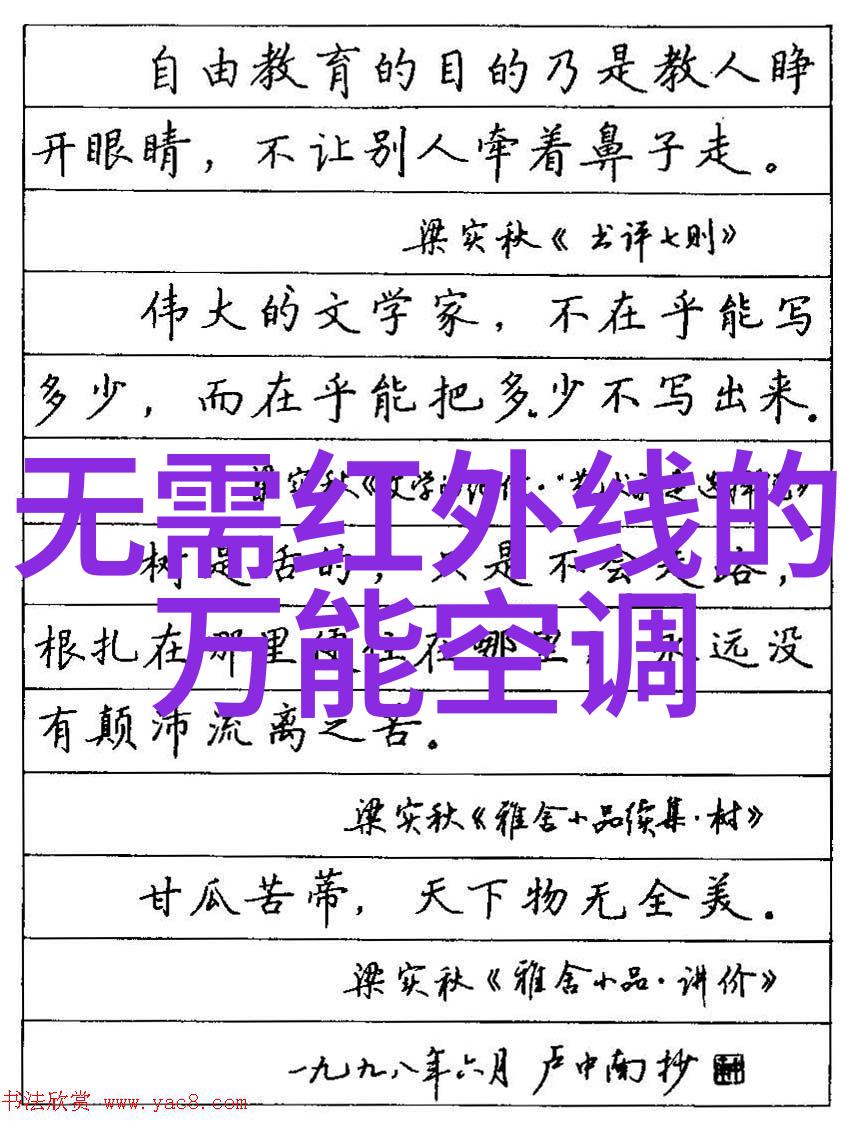 自由教育的目的乃是教人睁
开眼睛，不让别人牵着鼻子走。
梁实秋《书评七则》
伟大的文学家，不在乎能写
多少，而在乎能把多少不写出来.
无需红外线的
万能空调
梁实秋《文学的
树是活的，只是不会走路，
根扎在那里便住在那里，永远没
有颠沛流离之苦。
梁实秋《雅舍小品续集·树》
甘瓜苦蒂，天下物无全美.
梁实秋《雅舍小品·讲价》
一九九八年六月 卢中南抄
书法欣赏 www.yac8.com